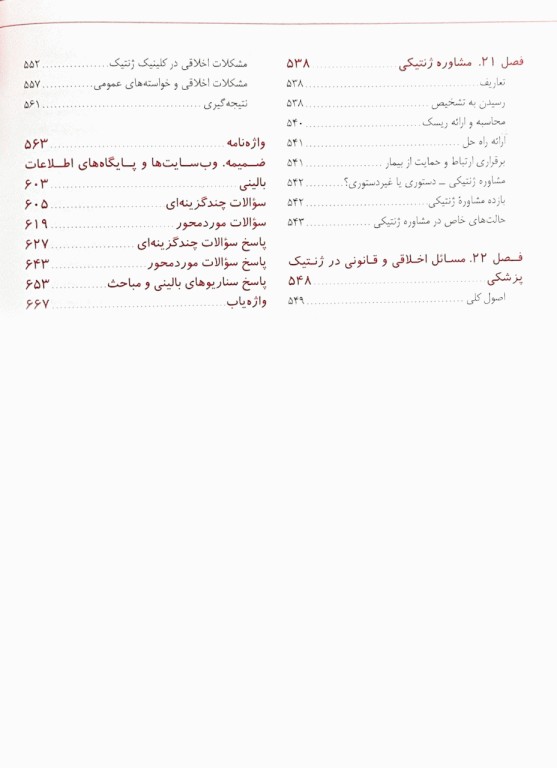 فصل ۲۱. مشاوره ژنتیکی ۵۳۸
تعاریف ۵۳۸
رسیدن به تشخیص ۵۳۸
محاسبه و ارائه ریسک ۵۴۰
ارائه راه حل ۵۴۱
برقراری ارتباط و حمایت از بیمار ۵۴۱
مشاوره ژنتیکی ــ دستوری یا غیردستوری؟ ۵۴۲
بازده مشاورهٔ ژنتیکی ۵۴۲
حالت‌های خاص در مشاوره ژنتیکی ۵۴۳
فصل ۲۲. مسائل اخلاقی و قانونی در ژنتیک
پزشکی ۵۴۸
اصول کلی ۵۴۹
مشکلات اخلاقی در کلینیک ژنتیک ۵۵۲
مشکلات اخلاقی و خواسته‌های عمومی ۵۵۷
نتیجه‌گیری ۵۶۱
واژه‌نامه ۵۶۳
ضمیمه. وب‌سایت‌ها و پایگاه‌های اطلاعات
بالینی ۶۰۳
سؤالات چندگزینه‌ای ۶۰۵
سؤالات موردمحور ۶۱۹
پاسخ سؤالات چندگزینه‌ای ۶۲۷
پاسخ سؤالات موردمحور ۶۴۳
پاسخ سناریوهای بالینی و مباحث ۶۵۳
واژه‌یاب ۶۶۷